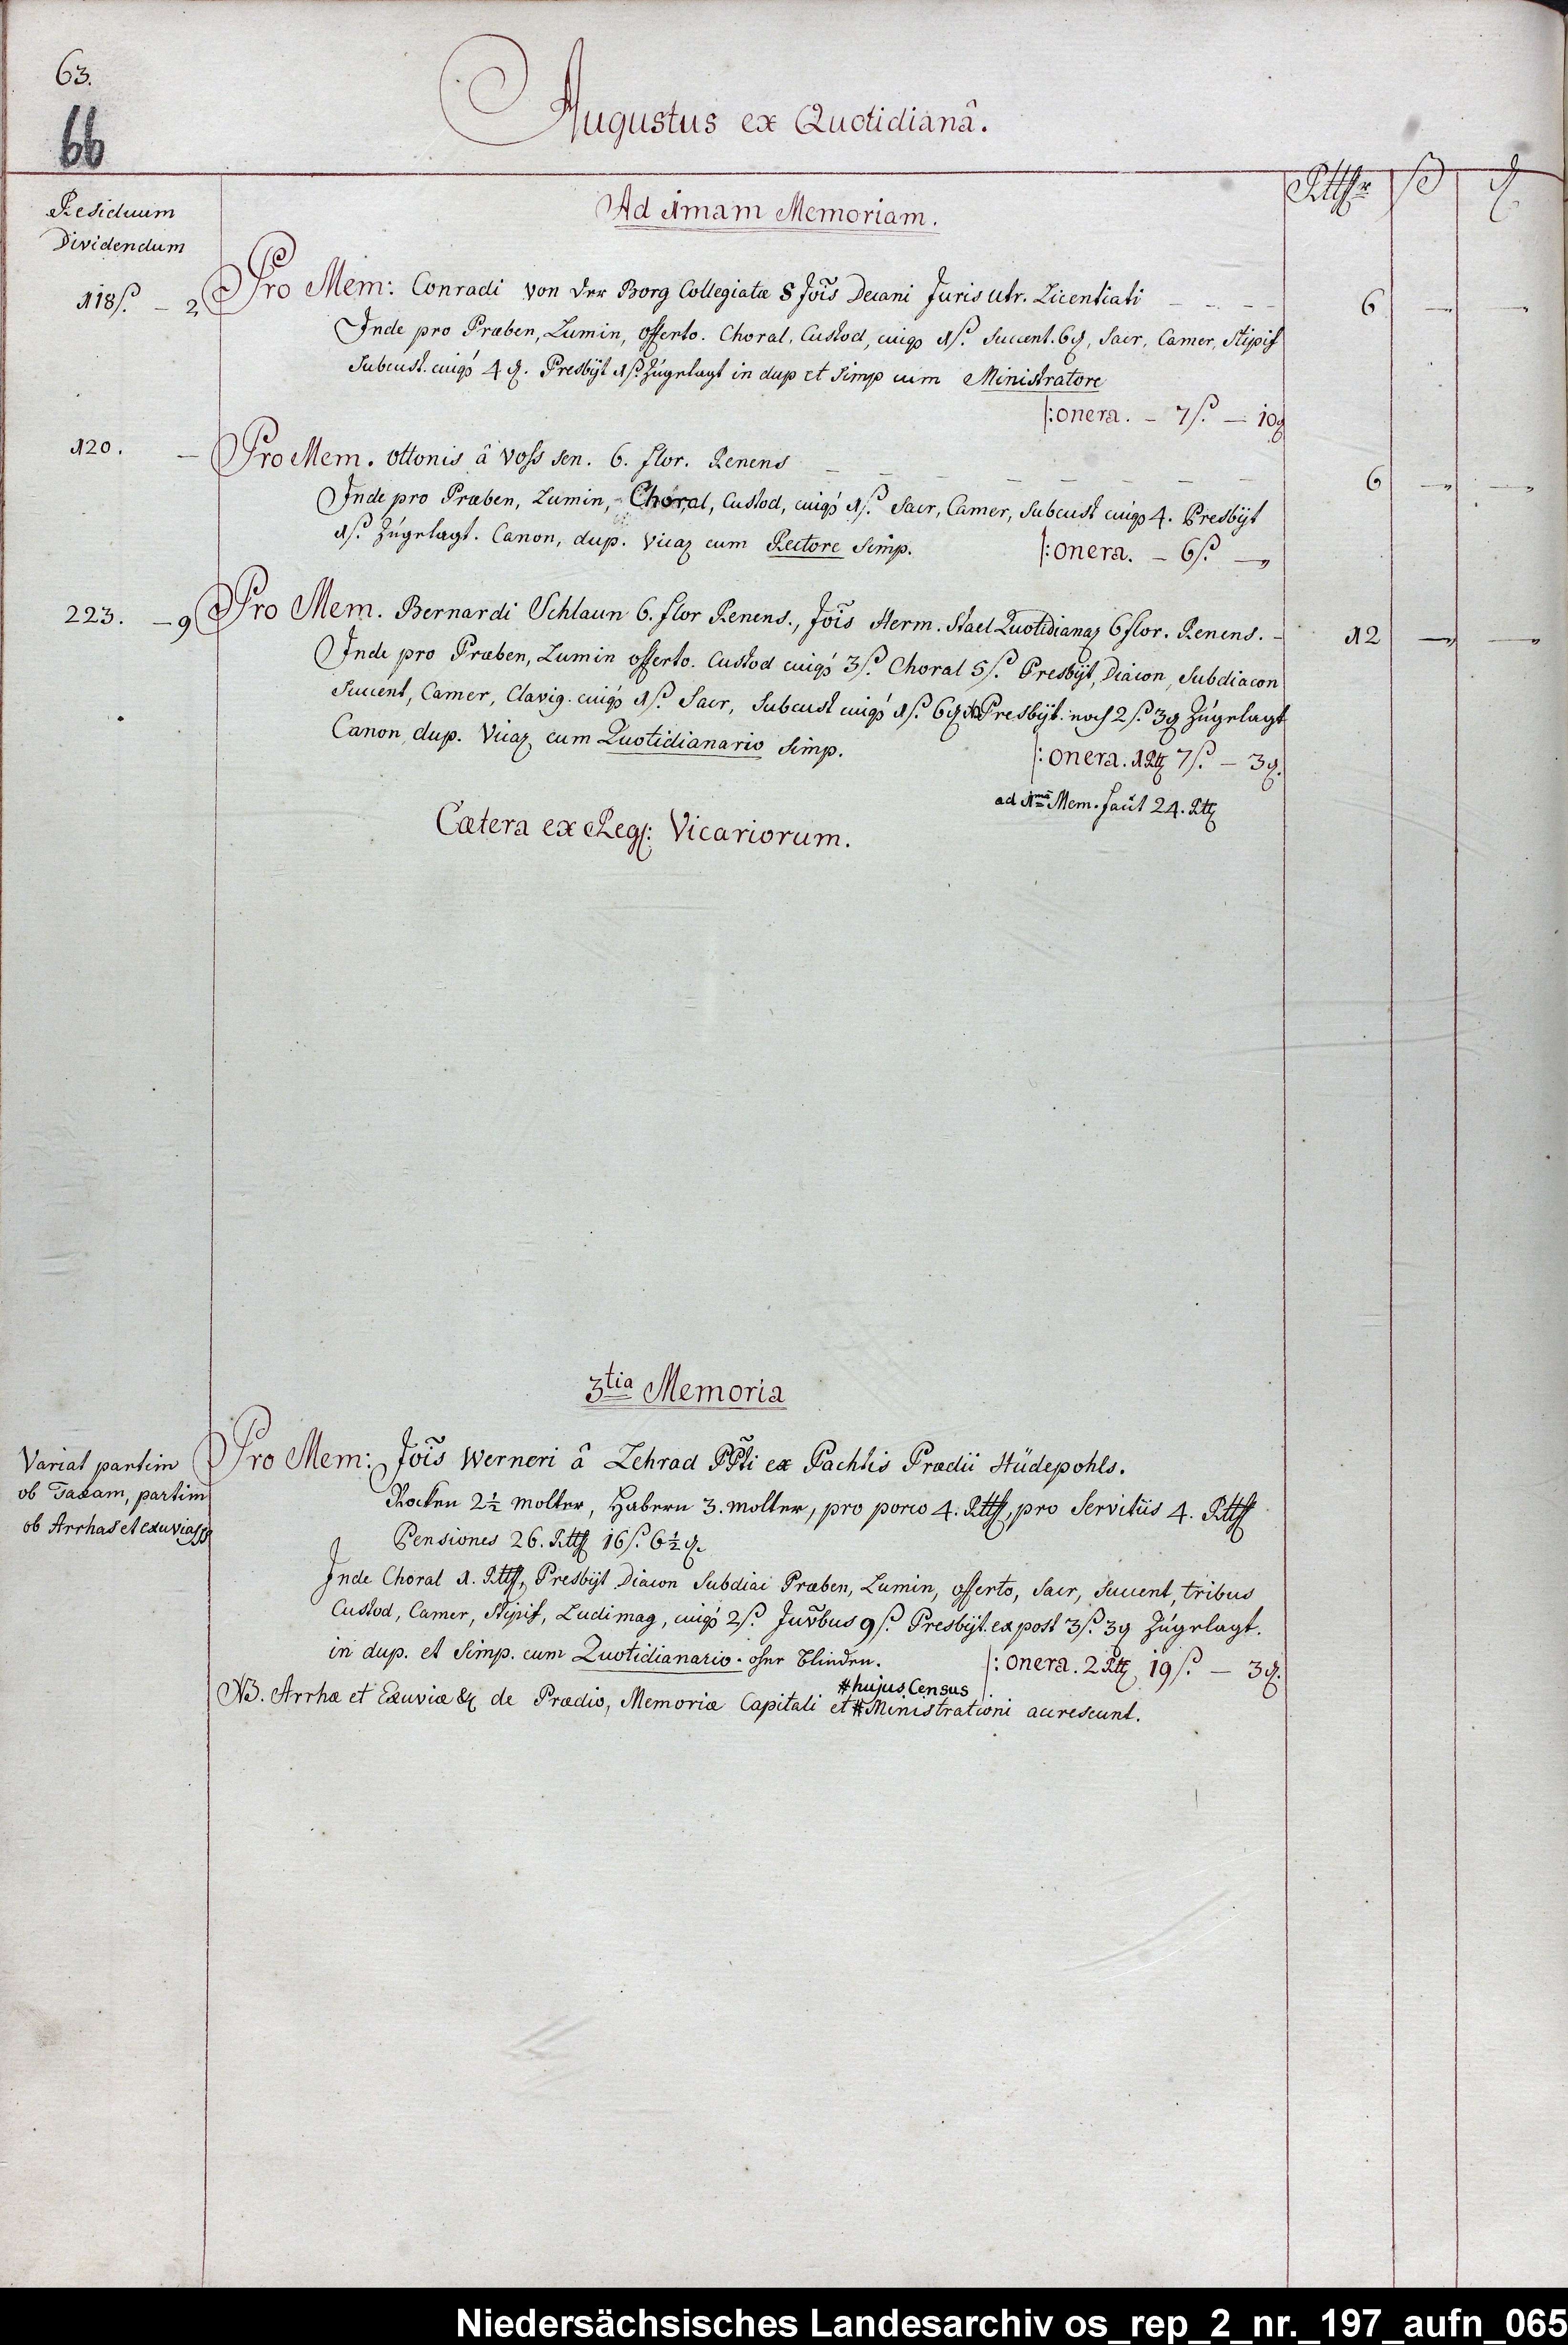 63.
66
Augustus ex Quotidianâ.
Rtlr ß ₰
Residuum
Dividendum
Ad 1mam Memoriam.
118 ß. – 2 Pro Mem: Conradi von der Borg Collegiatæ S Jois Decani Juris utr. Licentiati – – – – 6 — —
Inde pro Præben, Lumin, offerto. Choral, Custod, cuiq 1 ß. Succent. 6 ₰, Sacr, Camer, Stipif
Subcust. cuiq 4 ₰. Presbijt 1 ß. zugelagt in dup et simp cum Ministratore
|: onera. – 7 ß. – 10 ₰
120. – Pro Mem. Ottonis â Voss sen. 6. flor. Renens – – – – – – – 6 — —
Inde pro Præben, Lumin, Choral, Custod, cuiq 1 ß. Sacr, Camer, Subcust cuiq 4. Presbijt
1 ß. zugelagt. Canon, dup. Vicar cum Rectore simp. |: onera. – 6 ß. —
223. – 9 Pro Mem. Bernardi Schlaun 6. flor Renens., Jois Herm. Stael Quotidianar 6 flor. Renens. – 12 — —
Inde pro Præben, Lumin offerto. Custod cuiq 3 ß. Choral 5 ß. Presbijt, Diacon, Subdiacon
Succent, Camer, Clavig. cuiq 1 ß. Sacr, Subcust cuiq 1 ß. 6 ₰ Presbijt. noch 2 ß. 3 ₰ zugelagt
Canon, dup. Vicar cum Quotidianario simp. |: onera. 1 Rtlr 7 ß. – 3 ₰.
ad 1mã Mem. facit 24. Rtlr
Cætera ex Reg: Vicariorum.
3tia Memoria
Variat partim
ob Taxam, partim
ob Arrhas et exuvias
Pro Mem: Jois Werneri â Lehrad PPti ex Pachtis Prædii Hüdepohls.
Rocken 2½ molter, Habern 3. molter, pro porco 4. Rtlr, pro Servitiis 4. Rtlr
Pensiones 26. Rtlr 16 ß. 6½ ₰.
Inde Choral 1. Rtlr, Presbijt Diacon Subdiac Præben, Lumin, offerto, Sacr, Succent, tribus
Custod, Camer, Stipif, Ludimag, cuiq 2 ß. Juvbus 9 ß. Presbijt. ex post 3 ß. 3 ₰ zugelagt.
in dup. et Simp. cum Quotidianario. ohne blinden. |: onera. 2 Rtlr 19 ß. – 3 ₰.
# hujus Census
NB. Arrhæ et Exuviæ & de Prædio, Memoriæ Capitali et # Ministrationi accrescunt.
Niedersächsisches Landesarchiv os_rep_2_nr._197_aufn_065